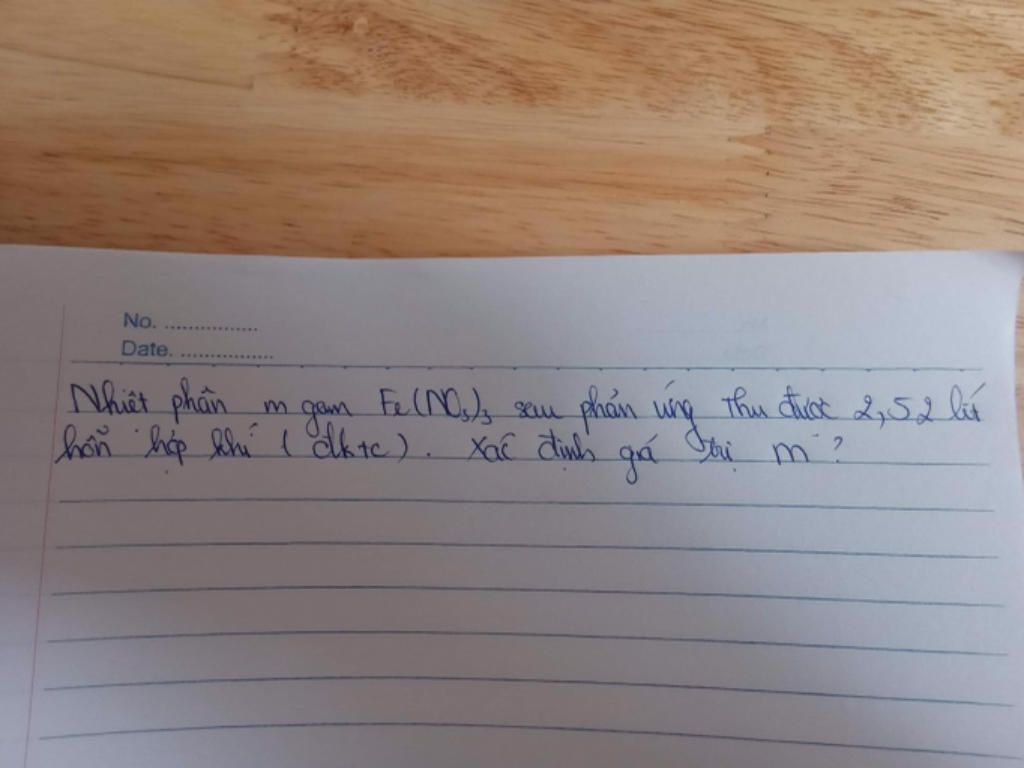 No. ................
Date. ................
Nhiệt phân m gam Fe(NO₃)₃ sau phản ứng thu được 2,52 lít
hỗn hợp khí (đktc). Xác định giá trị m ?